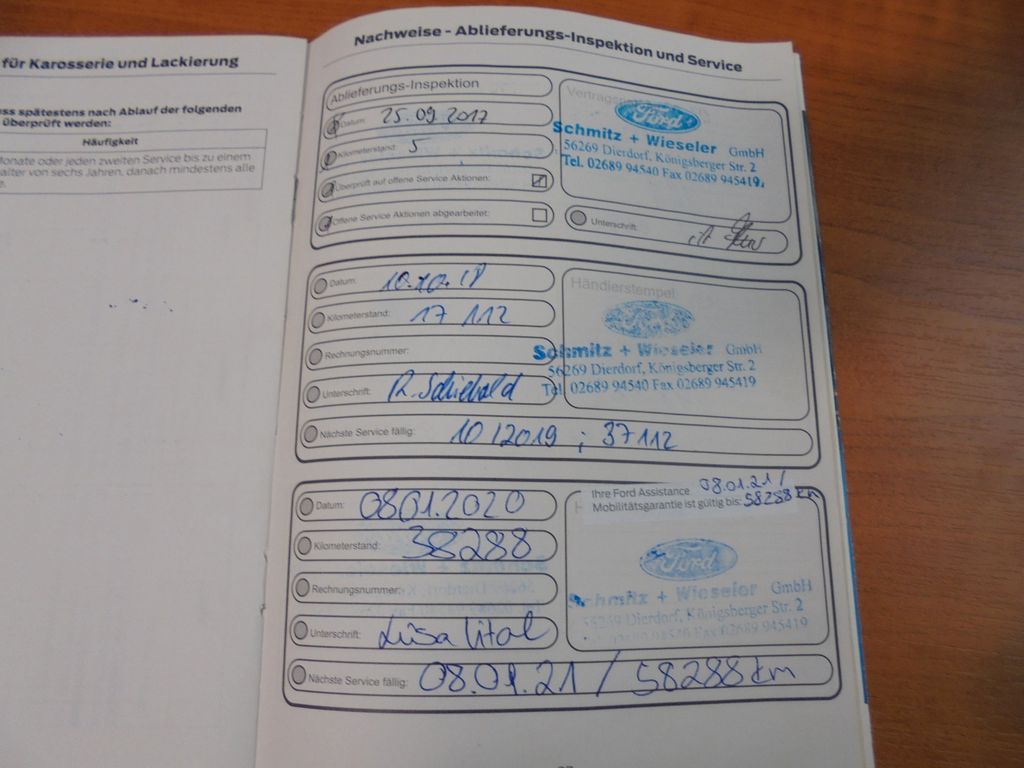 für Karosserie und Lackierung
ss spätestens nach Ablauf der folgenden
überprüft werden:
Häufigkeit
Monate oder jeden zweiten Service bis zu einem
alter von sechs Jahren, danach mindestens alle
Nachweise - Ablieferungs-Inspektion und Service
Ablieferungs-Inspektion
Datum: 25.09.2017
Kilometerstand: 5
Überprüft auf offene Service Aktionen:
Offene Service Aktionen abgearbeitet:
Ford
Schmitz + Wieseler GmbH
56269 Dierdorf, Königsberger Str. 2
Tel. 02689 94540 Fax 02689 945419
Unterschrift:
Datum: 10.10.18
Kilometerstand: 17 112
Rechnungsnummer:
Unterschrift: R. Schiebold
Nächste Service fällig: 10/2019 ; 37112
Händlerstempel
Schmitz + Wieseler GmbH
56269 Dierdorf, Königsberger Str. 2
Tel. 02689 94540 Fax 02689 945419
Datum: 08.01.2020
Kilometerstand: 38288
Rechnungsnummer:
Unterschrift: Luisa Vital
Nächste Service fällig: 08.01.21 / 58288 km
Ihre Ford Assistance 08.01.21 /
Mobilitätsgarantie ist gültig bis: 58288 km
Ford
Schmitz + Wieseler GmbH
56269 Dierdorf, Königsberger Str. 2
02689 94540 Fax 02689 945419